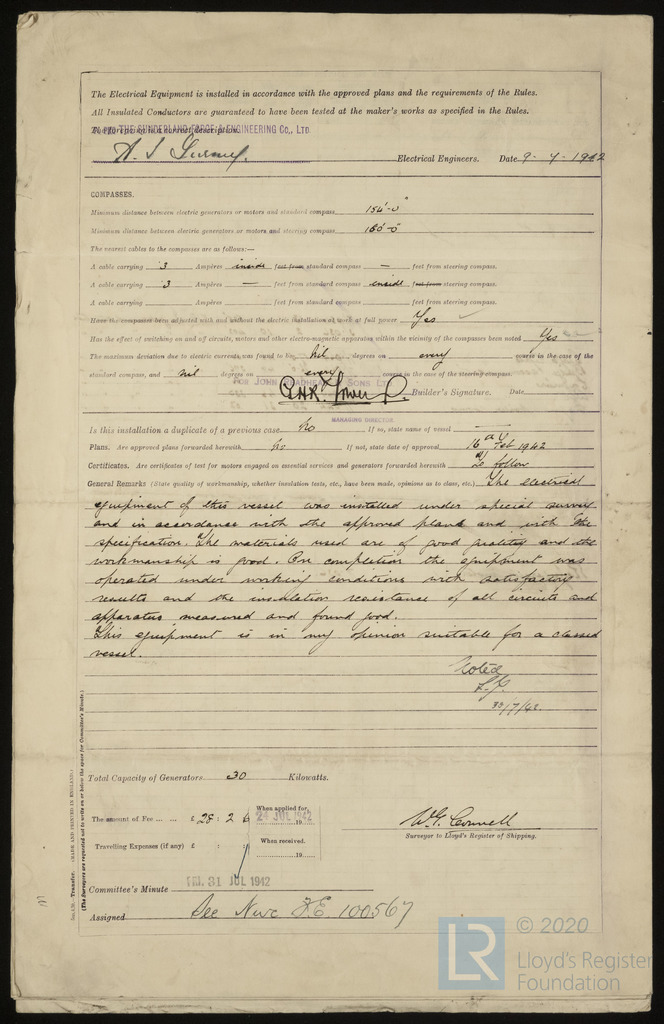 The Electrical Equipment is installed in accordance with the approved plans and the requirements of the Rules.
All Insulated Conductors are guaranteed to have been tested at the maker's works as specified in the Rules.
SUNDERLAND FORGE & ENGINEERING Co., LTD
Electrical Engineers. Date 9-7-1942
COMPASSES.
Minimum distance between electric generators or motors and standard compass 154'-0"
Minimum distance between electric generators or motors and steering compass 160'-0"
The nearest cables to the compasses are as follows:—
A cable carrying 3 Ampères inside feet from standard compass — feet from steering compass.
A cable carrying 3 Ampères — feet from standard compass inside feet from steering compass.
A cable carrying Ampères feet from standard compass feet from steering compass.
Have the compasses been adjusted with and without the electric installation at work at full power Yes
Has the effect of switching on and off circuits, motors and other electro-magnetic apparatus within the vicinity of the compasses been noted Yes
The maximum deviation due to electric currents was found to be nil degrees on every course in the case of the
standard compass, and nil degrees on every course in the case of the steering compass.
FOR JOHN READHEAD & SONS LTD
Builder's Signature. Date
MANAGING DIRECTOR.
Is this installation a duplicate of a previous case no If so, state name of vessel —
Plans. Are approved plans forwarded herewith no If not, state date of approval 16th Feb 1942
Certificates. Are certificates of test for motors engaged on essential services and generators forwarded herewith to follow
General Remarks (State quality of workmanship, whether insulation tests, etc., have been made, opinions as to class, etc.) The electrical
equipment of this vessel was installed under special survey
and in accordance with the approved plans and with the
specification. The materials used are of good quality and the
workmanship is good. On completion the equipment was
operated under working conditions with satisfactory
results and the insulation resistance of all circuits and
apparatus measured and found good.
This equipment is in my opinion suitable for a classed
vessel.
Noted
30/7/42
Total Capacity of Generators 30 Kilowatts.
The amount of Fee ... ... £ 28 : 2 : 6 When applied for, 24 JUL 1942 19
Travelling Expenses (if any) £ : : When received, 19
W.G. Connell
Surveyor to Lloyd's Register of Shipping.
Committee's Minute FRI. 31 JUL 1942
Assigned See Nwc F.E. 100567
Transfer. (MADE AND PRINTED IN ENGLAND.)
(The Surveyors are requested not to write on or below the space for Committee's Minute.)
LR © 2020
Lloyd's Register
Foundation